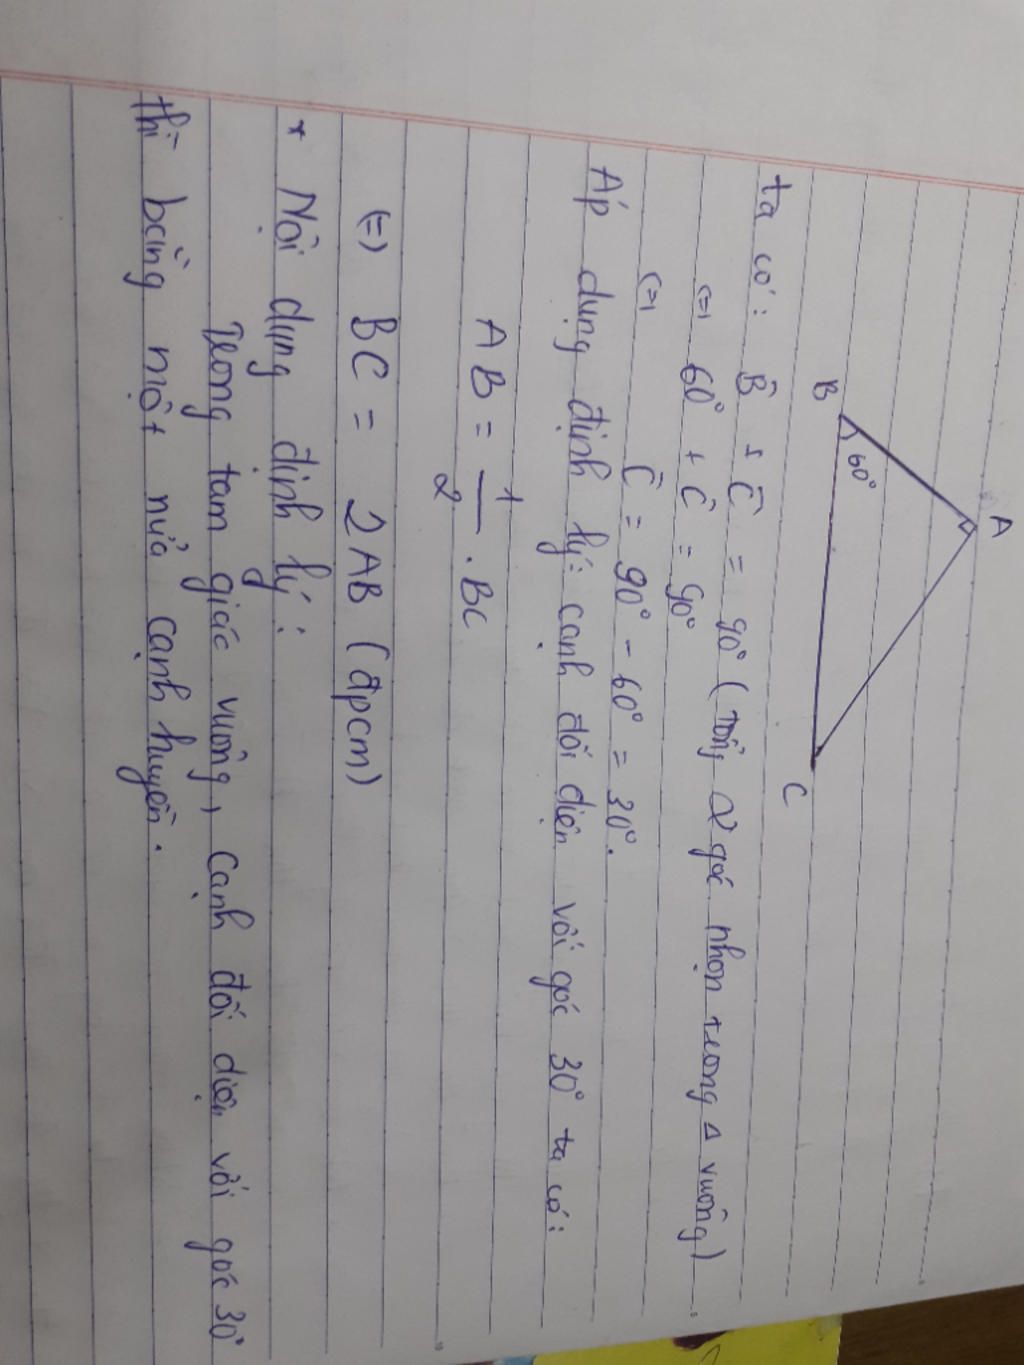 A
B
60°
C
ta có: B̂ + Ĉ = 90° (tổng 2 góc nhọn trong Δ vuông)
(=) 60° + Ĉ = 90°
(=) Ĉ = 90° - 60° = 30°.
Áp dụng định lý: cạnh đối diện với góc 30° ta có:
AB = 1/2 . BC
(=) BC = 2AB (đpcm)
* Nội dung định lý:
Trong tam giác vuông, cạnh đối diện với góc 30°
thì bằng một nửa cạnh huyền.